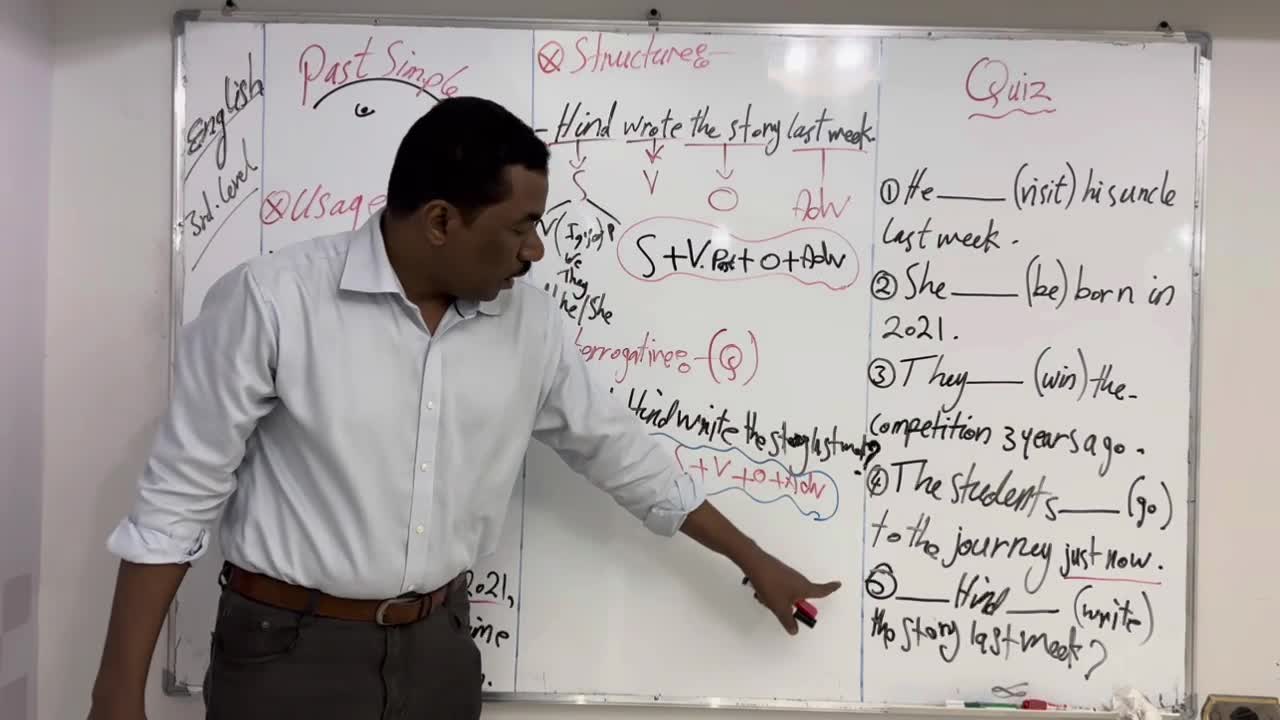 English
3rd. Level
Past Simple
Usage
2021,
Structure:
- Hind wrote the story last week.
S V O Adv
We
They
he/She
S + V. Past + O + Adv
(Q)
Hind write the story last week?
S + V + O + Adv
Quiz
① He ____ (visit) his uncle
last week.
② She ____ (be) born in
2021.
③ They ____ (win) the
competition 3 years ago.
④ The students ____ (go)
to the journey just now.
⑤ ____ Hind ____ (write)
the story last week?